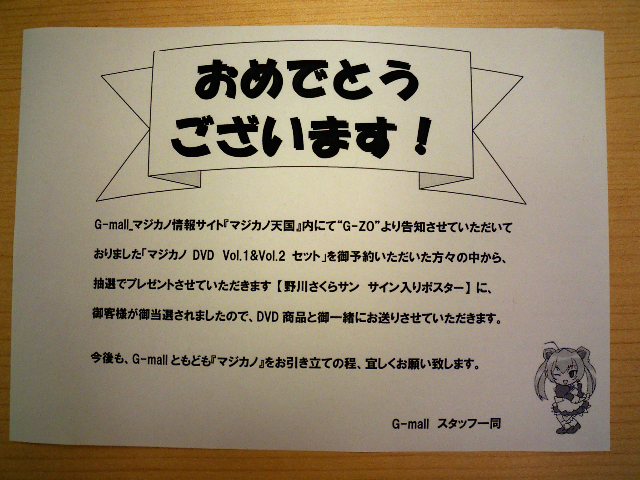 おめでとう
ございます!
G-mall_マジカノ情報サイト『マジカノ天国』内にて“G-ZO”より告知させていただいて
おりました「マジカノ DVD Vol.1&Vol.2 セット」を御予約いただいた方々の中から、
抽選でプレゼントさせていただきます【野川さくらサン サイン入りポスター】に、
御客様が御当選されましたので、DVD商品と御一緒にお送りさせていただきます。
今後も、G-mallともども『マジカノ』をお引き立ての程、宜しくお願い致します。
G-mall スタッフ一同